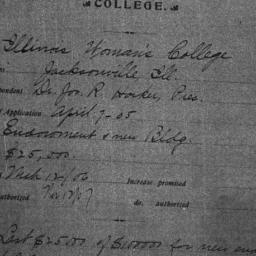 COLLEGE.
Illinois Woman's College
Jacksonville, Ill.
pondent Dr. Jos. R. Harker, Pres.
Application April 7-05
Endowment & new Bldg.
$25,000.
Mch 12/06 Increase promised
uthorized Nov 12/07 do. authorized
Last $25000 of $100000 for new